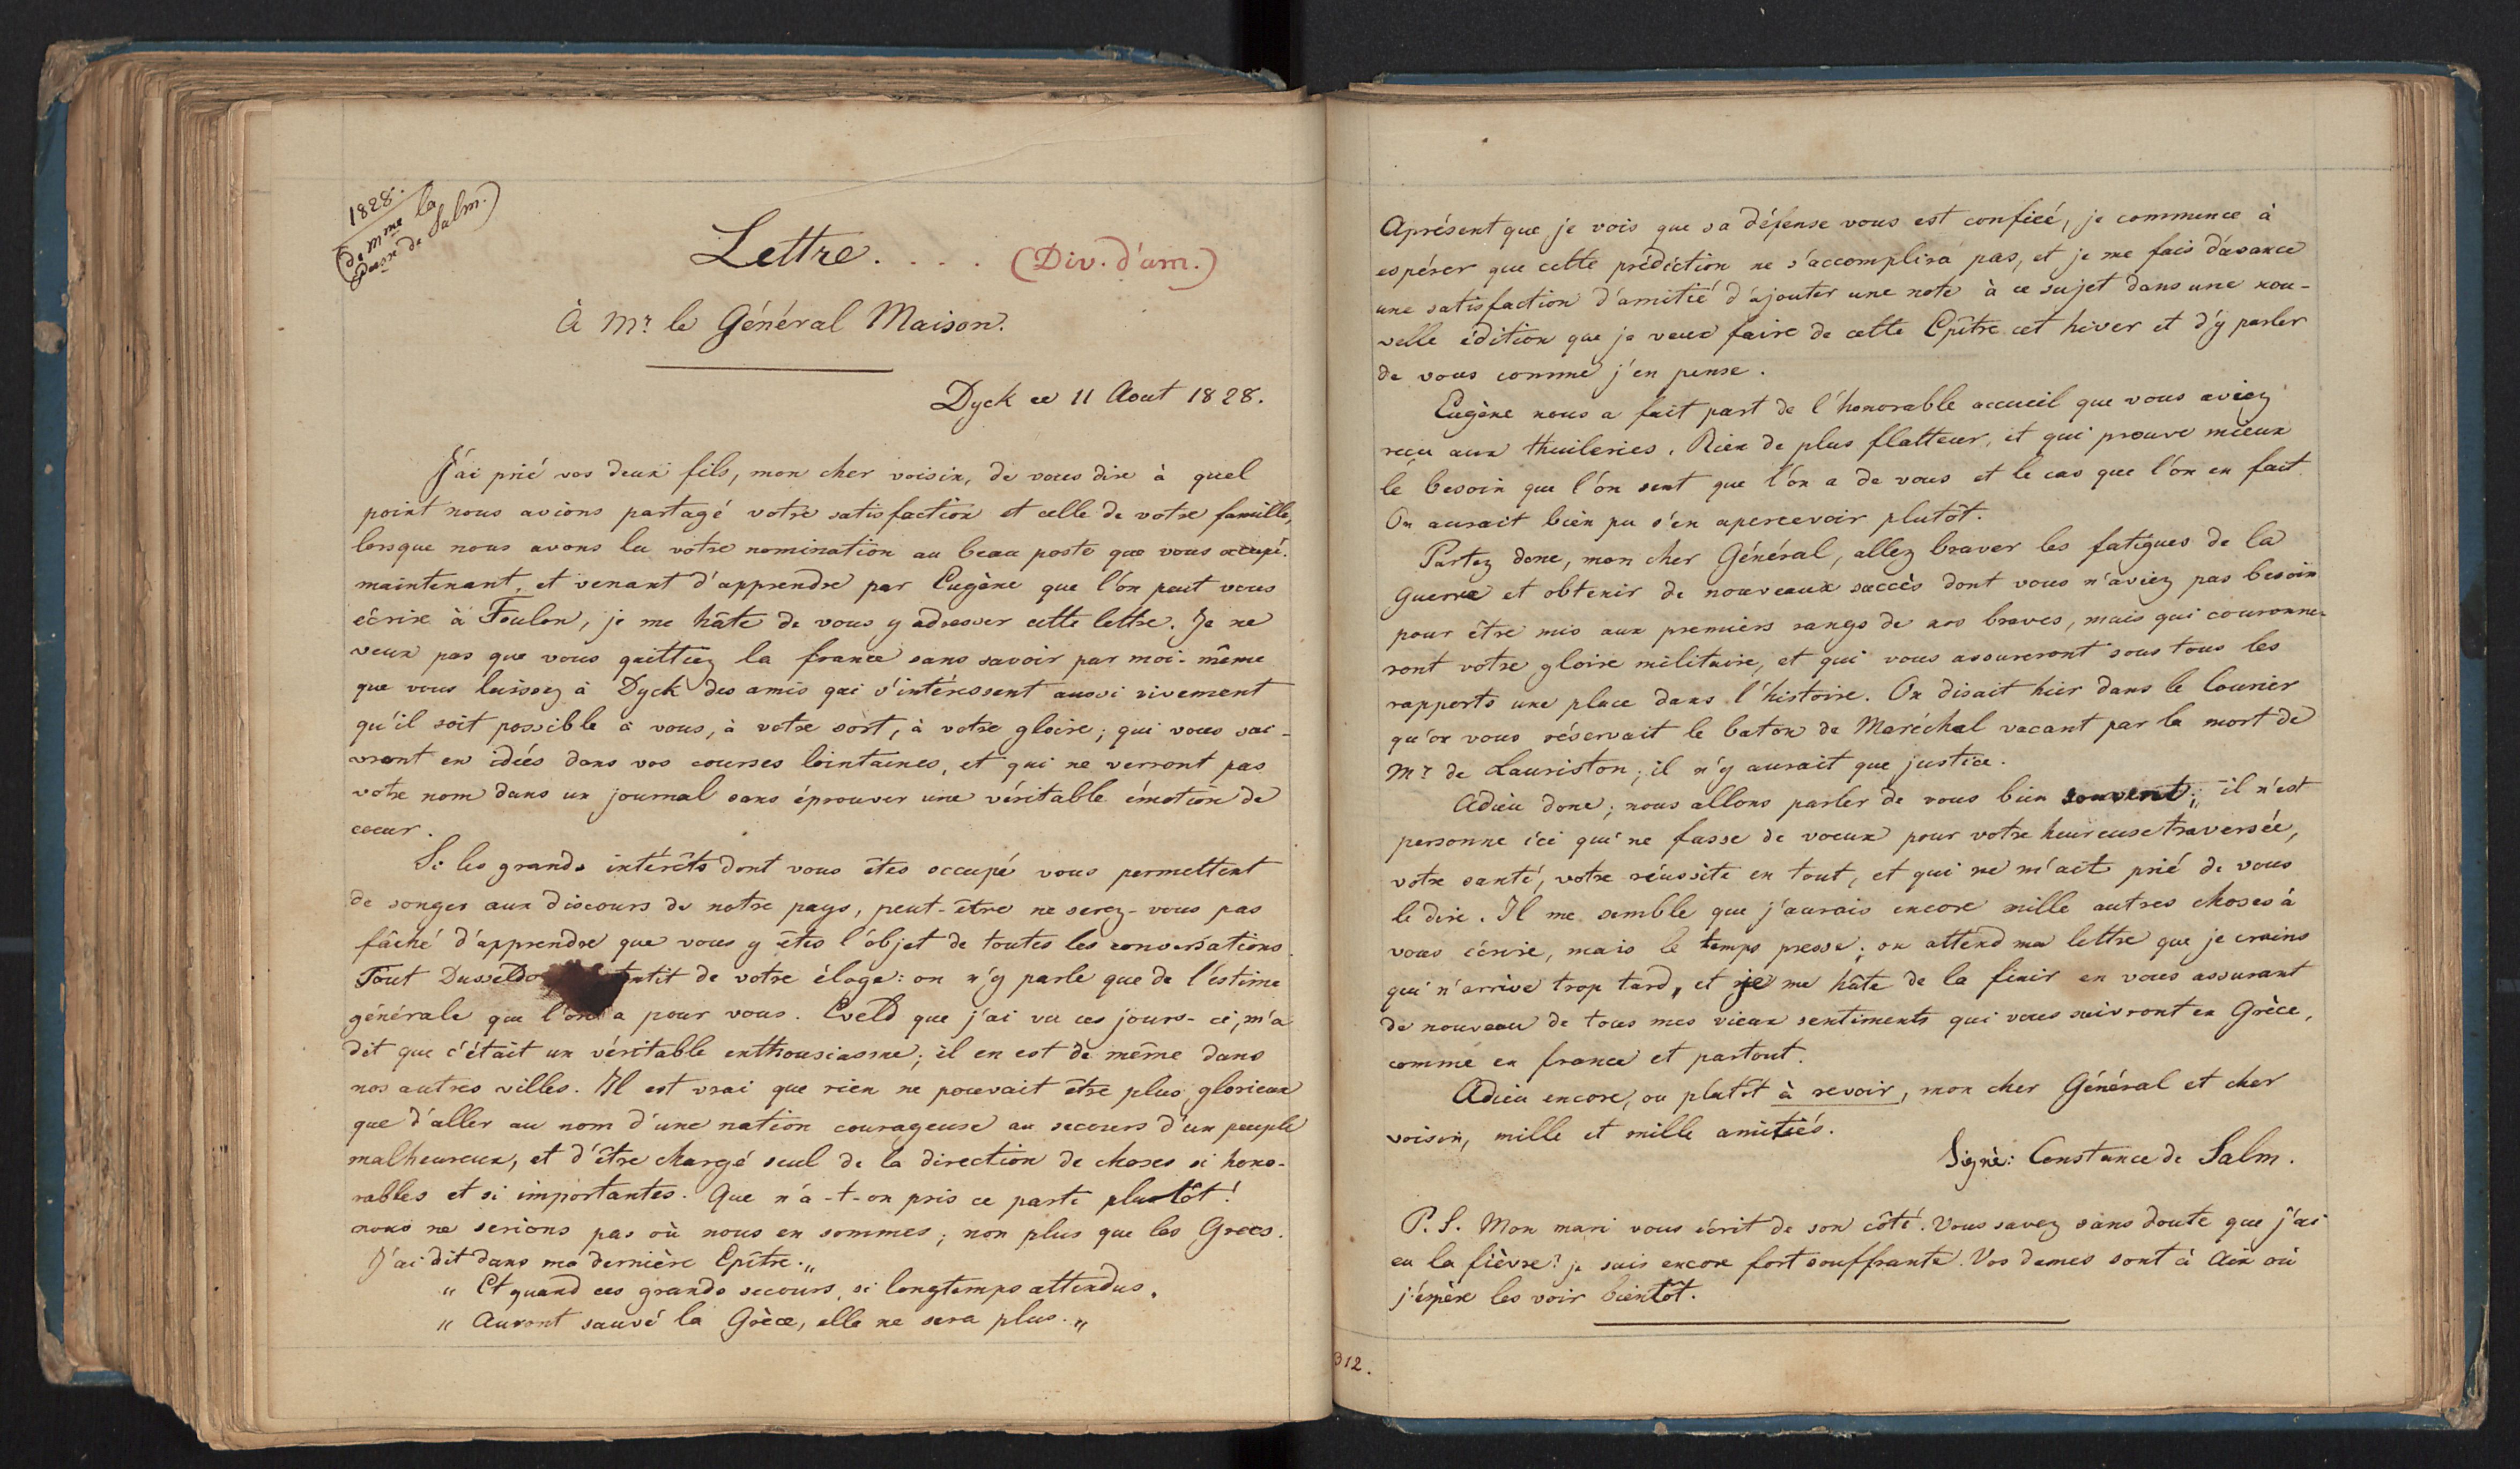 1828.
(de Mme la
Psse de Salm.)
Lettre. . . . (Div. d'am.)
À Mr. le Général Maison.
Dyck ce 11 Aout 1828.
J'ai prié vos deux fils, mon cher voisin, de vous dire à quel
point nous avions partagé votre satisfaction et celle de votre famille,
lorsque nous avons lu votre nomination au beau poste que vous occupé.
maintenant, et venant d'apprendre par Eugène que l'on peut vous
écrire à Toulon, je me hâte de vous y adresser cette lettre. Je ne
veux pas que vous quittiez la france sans savoir par moi-même
que vous laissez à Dyck des amis qui s'intéressent aussi vivement
qu'il soit possible à vous, à votre sort, à votre gloire; qui vous sui-
vront en idées dans vos courses lointaines, et qui ne verront pas
votre nom dans un journal sans éprouver une véritable émotion de
coeur.
Si les grands intérêts dont vous êtes occupé vous permettent
de songer aux discours de notre pays, peut-être ne serez-vous pas
fâché d'apprendre que vous y êtes l'objet de toutes les conversations.
Tout Dusseldo tentit de votre éloge: on n'y parle que de l'éstime
générale que l'on a pour vous. Eveld que j'ai vu ces jours-ci, m'a
dit que c'était un véritable enthousiasme; il en est de même dans
nos autres villes. Il est vrai que rien ne pouvait être plus glorieux
que d'aller au nom d'une nation courageuse au secours d'un peuple
malheureux, et d'être chargé seul de la direction de choses si hono-
rables et si importantes. Que n'a-t-on pris ce parti plustôt!
nous ne serions pas où nous en sommes; non plus que les Grecs.
J'ai dit dans ma dernière Epître. "
" Et quand ces grands secours, si longtemps attendus,
" Auront sauvé la Grèce, elle ne sera plus. "
Aprésent que je vois que sa défense vous est confiée, je commence à
espérer que cette prédiction ne s'accomplira pas, et je me fais d'avance
une satisfaction d'amitié d'ajouter une note à ce sujet dans une nou-
velle édition que je veux faire de cette Epître cet hiver et d'y parler
de vous comme j'en pense.
Eugène nous a fait part de l'honorable accueil que vous aviez
reçu aux thuileries. Rien de plus flatteur, et qui prouve mieux
le besoin que l'on sent que l'on a de vous et le cas que l'on en fait.
On aurait bien pu s'en apercevoir plutôt.
Partez donc, mon cher Général, allez braver les fatigues de la
Guerre et obtenir de nouveaux succès dont vous n'aviez pas besoin
pour être mis aux premiers rangs de nos braves, mais qui couronne-
ront votre gloire militaire, et qui vous assureront sous tous les
rapports une place dans l'histoire. On disait hier dans le Courier
qu'on vous réservait le baton de Maréchal vacant par la mort de
Mr. de Lauriston; il n'y aurait que justice.
Adieu donc; nous allons parler de vous bien souvent; il n'est
personne ici qui ne fasse de voeux pour votre heureuse traversée,
votre santé, votre réussite en tout, et qui ne m'ait prié de vous
le dire. Il me semble que j'aurais encore mille autres choses à
vous écrire, mais le temps presse; on attend ma lettre que je crains
qui n'arrive trop tard, et je me hâte de la finir en vous assurant
de nouveau de tous mes vieux sentiments qui vous suivront en Grèce,
comme en france et partout.
Adieu encore, ou plutôt à revoir, mon cher Général et cher
voisin, mille et mille amitiés.
Signé: Constance de Salm.
P.S. Mon mari vous écrit de son côté. Vous savez sans doute que j'ai
eu la fièvre? je suis encore fort souffrante. Vos dames sont à Aix où
j'éspère les voir bientôt.
312.